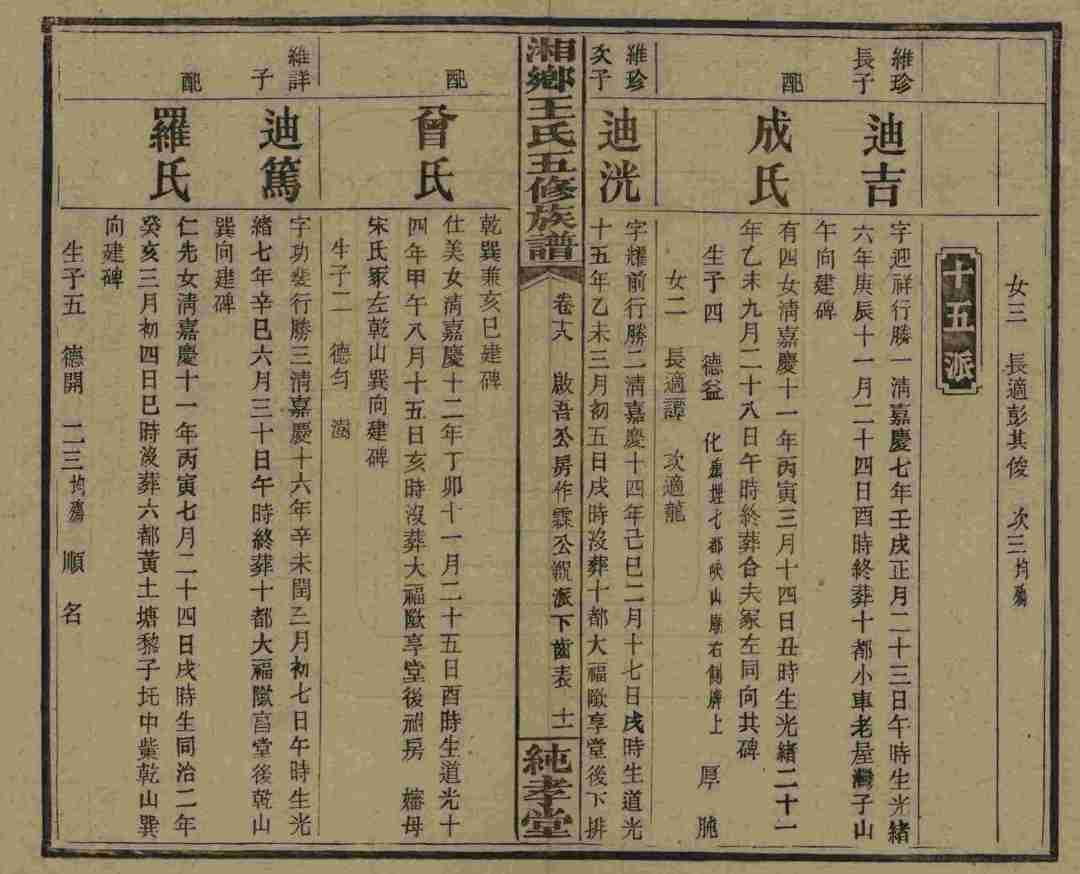 女三 長適彭其俊 次三均殤
十五派
維珍長子
迪吉
字迎祥行勝一淸嘉慶七年壬戌正月二十三日午時生光緒
六年庚辰十一月二十四日酉時終葬十都小車老屋灣子山
午向建碑
配
成氏
有四女淸嘉慶十一年丙寅三月十四日丑時生光緒二十一
年乙未九月二十八日午時終葬合夫冢左同向共碑
生子四 德益 化 七都 山廟右側 上 厚
女二 長適譚 次適龍
維珍次子
迪洸
字耀前行勝二淸嘉慶十四年己巳二月十七日戌時生道光
十五年乙未三月初五日戌時沒葬十都大福歐享堂後下排
湘鄉王氏五修族譜
卷十八 啟吾公房作霖公親派下齒表 十一
純孝堂
乾巽兼亥巳建碑
配
曾氏
仕美女淸嘉慶十二年丁卯十一月二十五日酉時生道光十
四年甲午八月十五日亥時沒葬大福歐享堂後 房 嬸母
宋氏冢左乾山巽向建碑
生子二 德勻
維詳子
迪篤
字功斐行勝三淸嘉慶十六年辛未閏三月初七日午時生光
緒七年辛巳六月三十日午時終葬十都大福歐享堂後乾山
巽向建碑
配
羅氏
仁先女淸嘉慶十一年丙寅七月二十四日戌時生同治二年
癸亥三月初四日巳時沒葬六都黃土塘黎子 中 乾山巽
向建碑
生子五 德開 二三均殤 順 名